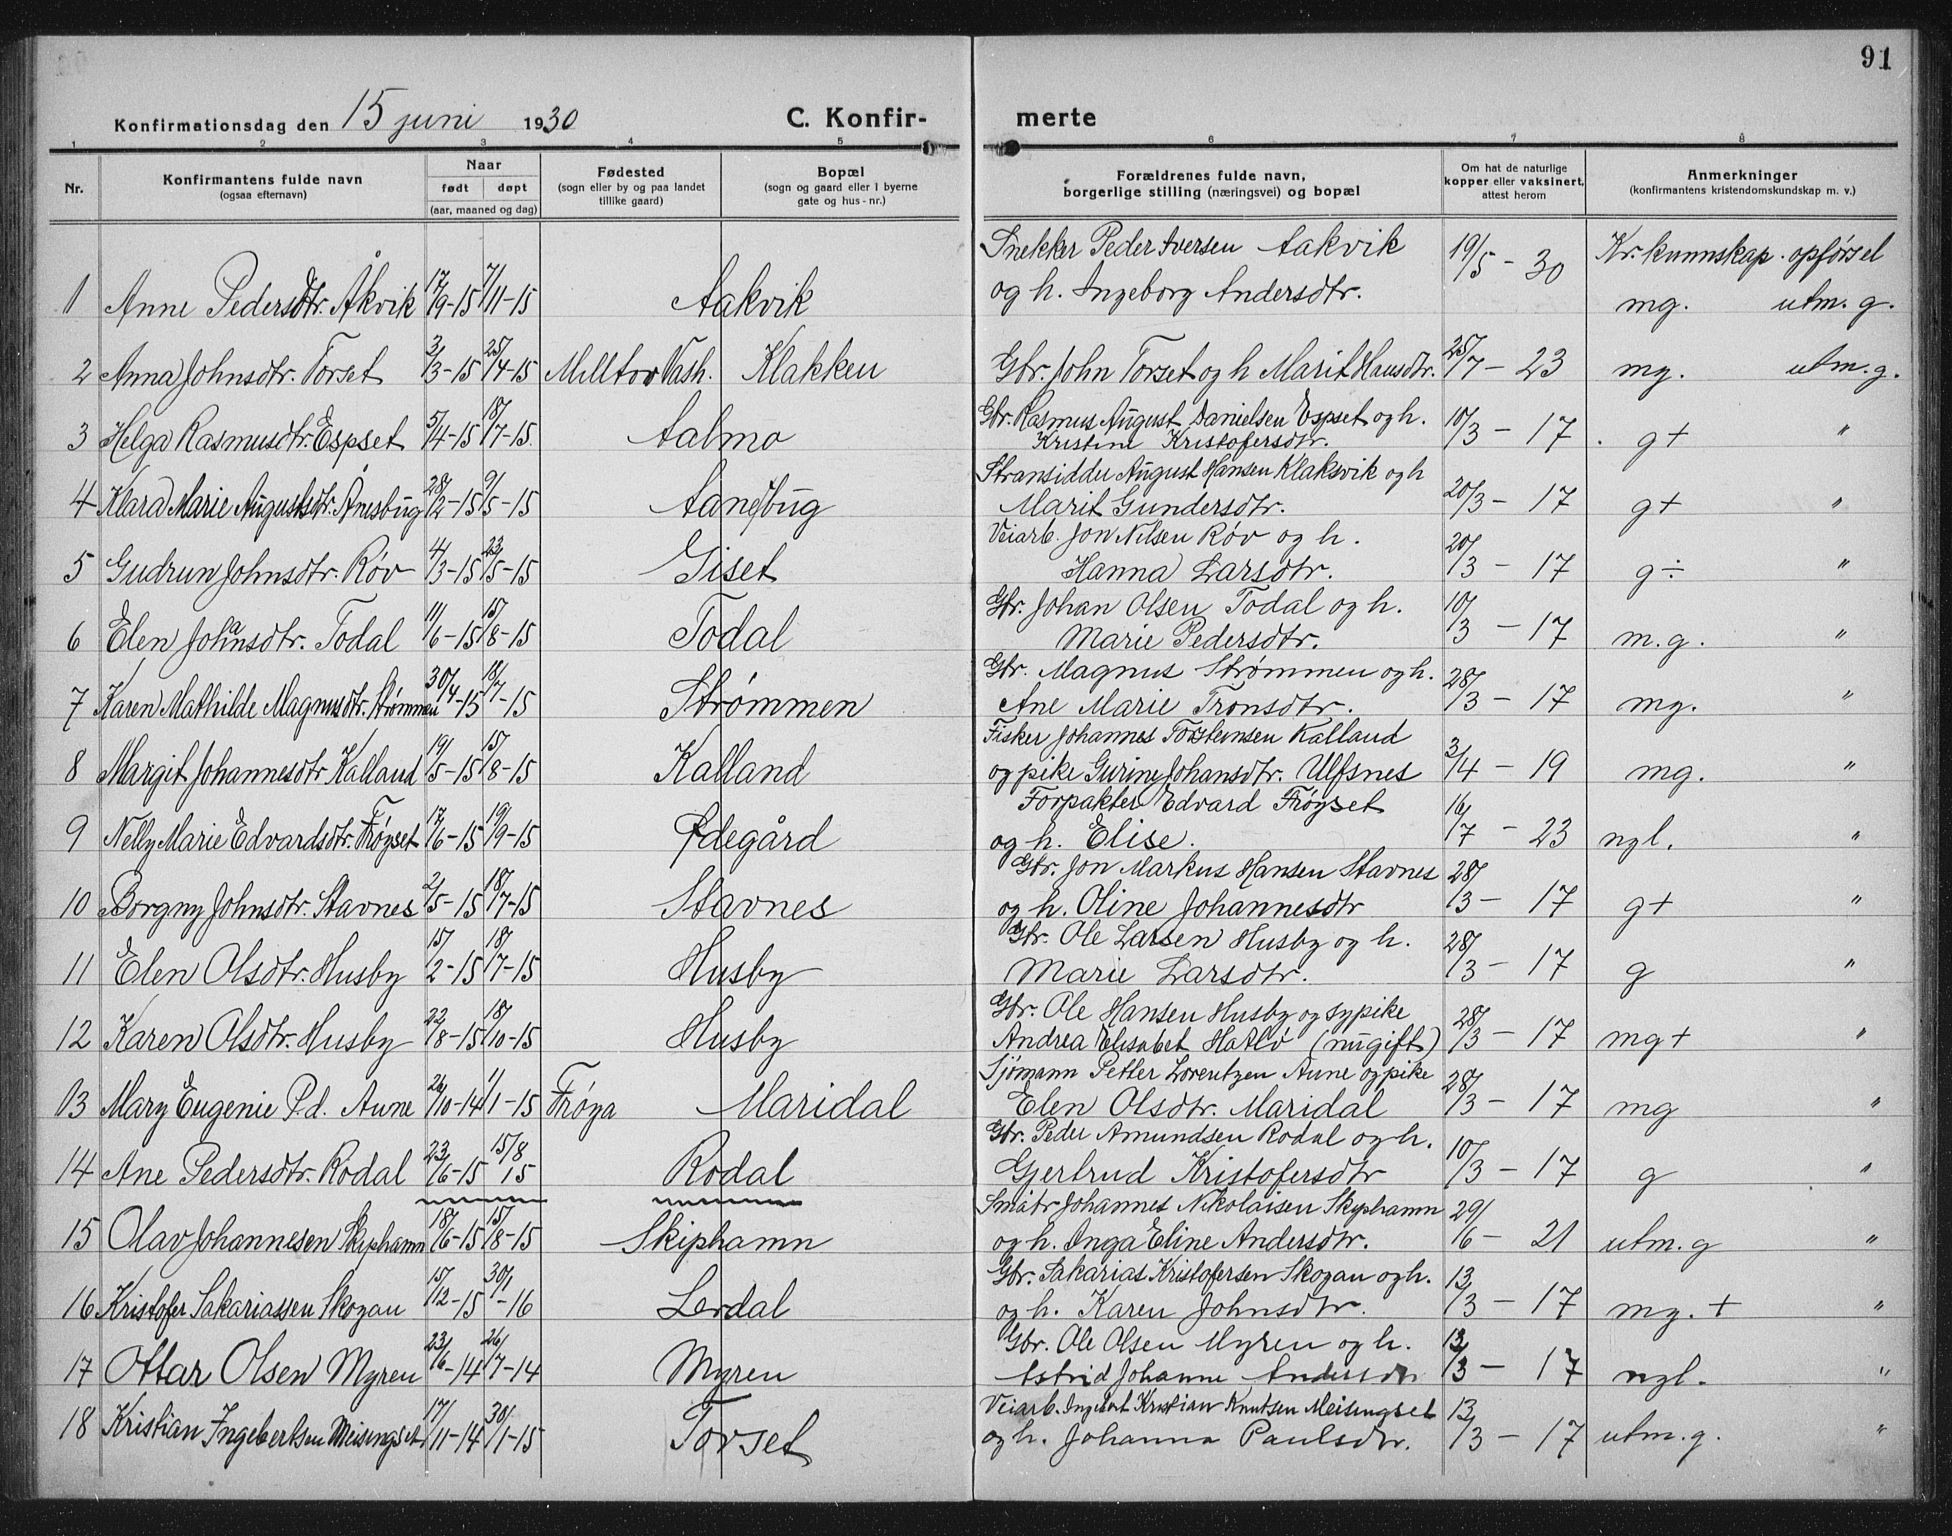 91
Konfirmationsdag den 15 juni 1930 C. Konfir- merte
1 2 3 4 5 6 7 8
Nr. Konfirmantens fulde navn (ogsaa efternavn) Naar født døpt (aar, maaned og dag) Fødested (sogn eller by og paa landet tillike gaard) Bopæl (sogn og gaard eller i byerne gate og hus-nr.) Forældrenes fulde navn, borgerlige stilling (næringsvei) og bopæl Om hat de naturlige kopper eller vaksinert, attest herom Anmerkninger (konfirmantens kristendomskundskap m. v.)
Snekker Peder Iversen Aakvik 19/5-30 Kr. kunnskap. opførsel
1 Anne Pedersdtr. Åkvik 17/9-15 7/11-15 Aakvik og h. Ingeborg Andersdtr. mg. utm. g.
2 Anna Johnsdtr. Torset 3/3-15 25/4-15 Milltor Vash. Klakken Gbr. John Torset og h Marit Hansdtr. 25/7-23 mg. utm. g.
Gbr. Rasmus August Danielsen Espset og h.
3 Helga Rasmusdtr. Espset 5/4-15 18/7-15. Aalmo Kristine Kristofersdtr. 10/3-17 g+ "
Stransidder August Hansen Klaksvik og h
4 Klara Marie Augustsdtr. Ånesbug 28/2-15 9/5-15 Aanesbug Marit Gundersdtr. 20/3-17 g+ "
Veiarb. Jon Nilsen Røv og h.
5 Gudrun Johnsdtr. Røv 4/3-15 23/5-15 Giset Hanna Larsdtr. 20/3-17 g÷ "
Gbr. Johan Olsen Todal og h.
6 Elen Johansdtr. Todal 11/6-15 15/8-15 Todal Marie Pedersdtr. 10/3-17 m.g. "
Gbr. Magnus Strømmen og h.
7 Karen Mathilde Magnusdtr. Strømmen 30/4-15 18/7-15 Strømmen Ane Marie Tronsdtr. 28/3-17 mg. "
Fisker Johannes Torsteinsen Kalland
8 Margit Johannesdtr. Kalland 19/5-15 15/8-15 Kalland og pike Gurine Johansdtr. Ulfsnes 3/4-19 mg. "
Forpakter Edvard Frøyset
9 Nelly Marie Edvardsdtr. Frøyset 17/6-15 19/9-15 Ødegård og h. Elise. 16/7-23 ngl. "
Gbr. Jon Markus Hansen Stavnes
10 Borgny Johnsdtr. Stavnes 2/5-15 18/7-15 Stavnes og h. Oline Johannesdtr 28/3-17 g+ "
Gbr. Ole Larsen Husby og h.
11 Elen Olsdtr. Husby 15/2-15 18/7-15 Husby Marie Larsdtr. 28/3-17 g "
Gbr. Ole Hansen Husby og sypike
12 Karen Olsdtr. Husby 22/8-15 18/10-15 Husby Andrea Elisabet Hatlø (nu gift) 28/3-17 mg+ "
Sjømann Petter Lorentzen Aune og pike
13 Mary Eugenie P.d. Aune 26/10-14 1/1-15 Frøya Maridal Elen Olsdtr. Maridal 28/3-17 mg "
Gbr. Peder Amundsen Rodal og h.
14 Ane Pedersdtr. Rodal 23/6-15 15/8 15 Rodal Gjertrud Kristofersdtr 10/3-17 g "
Småbr Johannes Nikolaisen Skiphamn
15 Olav Johannesen Skiphamn 18/6-15 15/8-15 Skiphamn og h. Inga Eline Andersdtr. 29/6-21 utm. g "
Gbr. Sakarias Kristofersen Skogan og h.
16 Kristofer Sakariassen Skogan 15/12-15 30/1-16 Lerdal og h. Karen Johnsdtr. 13/3-17 mg. + "
Gbr. Ole Olsen Myren og h.
17 Ottar Olsen Myren 23/6-14 26/7-14 Myren Astrid Johanne Andersdtr 13/3-17 ngl. "
Veiarb. Ingebert Kristian Knutsen Meisingset
18 Kristian Ingebertsen Meisingset 17/11-14 30/1-15 Torset og h. Johanna Paulsdtr. 13/3-17 utm. g. "